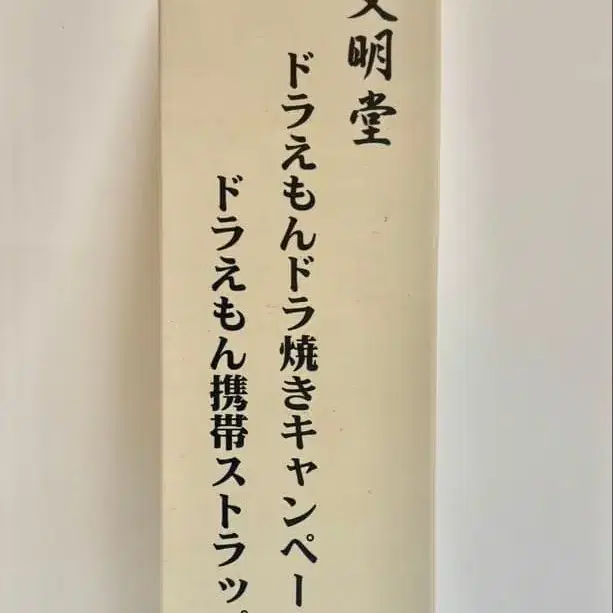 文明堂
ドラえもんドラ焼きキャンペー
ドラえもん携帯ストラップ